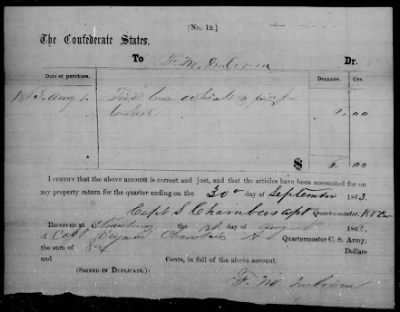 [No. 12.]
The Confederate States,
To F. M. Imboden Dr.
Date of purchase. Dollars. Cts.
Aug 1.
00
$ 6 00
I certify that the above account is correct and just, and that the articles have been accounted for on
my property return for the quarter ending on the 30th day of September 1863.
Capt S Chambers Quartermaster.
Received at the 1st day of August 1863,
of Capt Chambers A Quartermaster C. S. Army,
the sum of Six Dollars
and Cents, in full of the above account.
(Signed by Duplicate.) F. M. Imboden